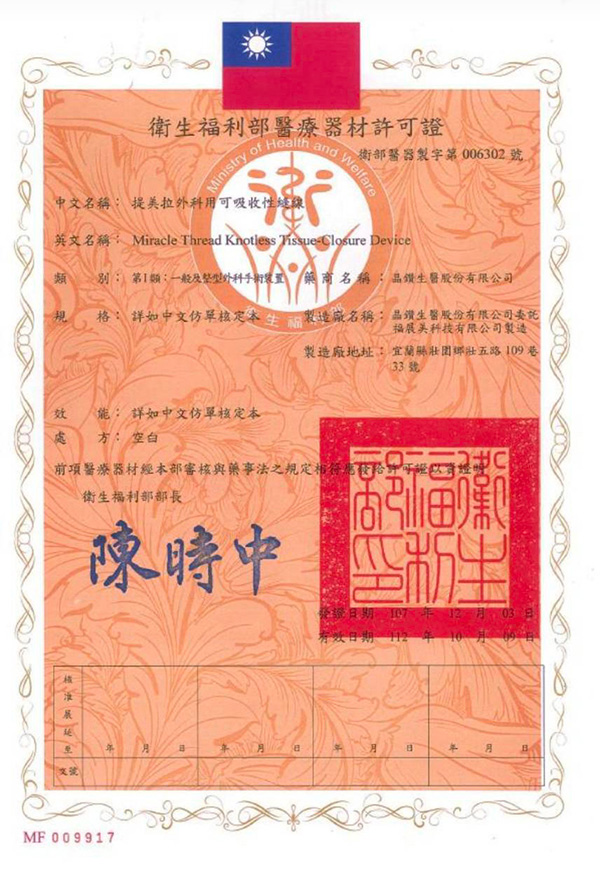 衛生福利部醫療器材許可證
Ministry of Health and Welfare
衛部醫器製字第 006302 號
中文名稱： 提美拉外科用可吸收性縫線
英文名稱： Miracle Thread Knotless Tissue-Closure Device
類 別： 第I類：一般及整型外科手術裝置 藥商名稱： 晶鑽生醫股份有限公司
規 格： 詳如中文仿單核定本 製造廠名稱： 晶鑽生醫股份有限公司委託
福展美科技有限公司製造
衛生福利部
製造廠地址： 宜蘭縣壯圍鄉壯五路 109 巷
33 號
效 能： 詳如中文仿單核定本
處 方： 空白
前項醫療器材經本部審核與藥事法之規定相符應發給許可證以資證明
衛生福利部部長
陳時中
衛生福利部印
發證日期 107 年 12 月 03 日
有效日期 112 年 10 月 09 日
核准展延至 年 月 日 年 月 日 年 月 日 年 月 日
文號
MF 009917